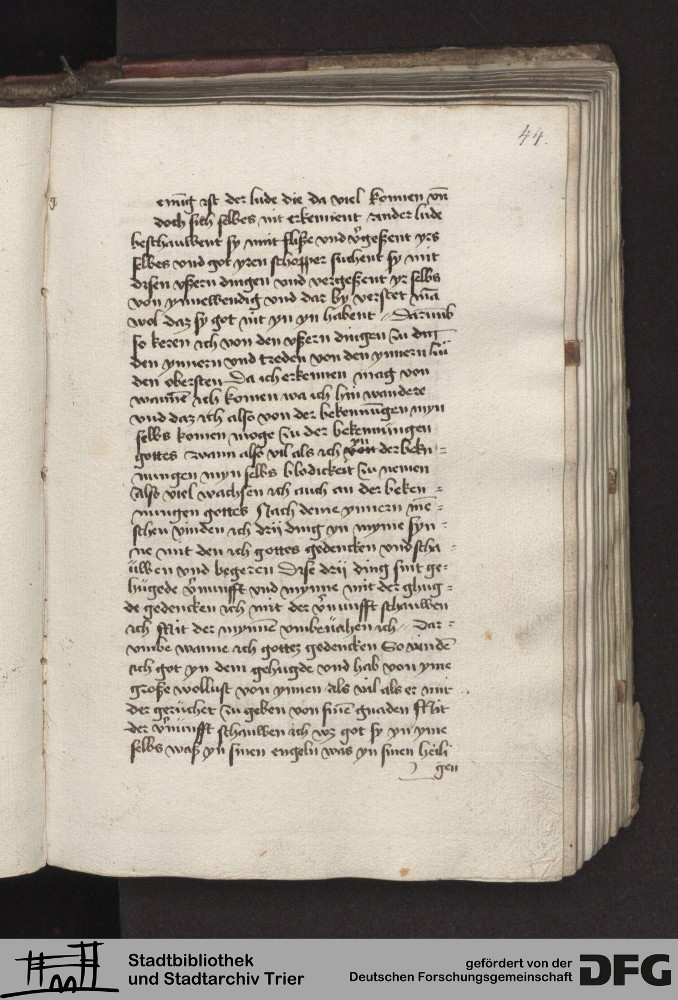 44.
emig ist der lude die da viel konnen vn̄
doch sich selbes nit erkennent ander lude
beschauwent sy mit fliße vnd v̓geßent yrs
selbes vnd got yren schopper suchent sy mit
disen vßern dingen vnd vergeßent yr selbs
von ynnewendig vnd dar by verstet mā
wol daz sy got nit yn yn habent Darumb
so keren ich von den vßern dingen zu
den ynnern vnd treden von den ynnern zu
den obersten Da ich erkennen mag von
wannē ich komen wa ich hin wandere
vnd daz ich also von der bekennūgen myn
selbs komen moge zu der bekennūngen
gottes wann also vil als ich der bekn-
nungen myn selbs blodickeit zu nemen
also viel wachsen ich auch an der beken-
nungen gottes Nach deme ynnern mē-
schen vinden ich drij ding yn myme syn-
ne mit den ich gottes gedencken vnd scha-
uwen vnd begeren Dise drij ding sint ge-
hugede v̓nunfft vnd mynne mit der ghug-
de gedencken ich mit der v̓nunfft schauwen
ich Mit der mynnē vmbevahen ich Dar-
vmbe wanne ich gottes gedencken So vindē
ich got yn dem gehugde vnd hab von yme
große wollust von ynnen als vil als er mir
der geruchet zu geben von sinē gnaden Mit
der v̓nunfft schauwen ich wz got sy yn yme
selbs waß yn sinen engeln was yn sinen heili
gen
Stadtbibliothek
und Stadtarchiv Trier
gefördert von der
Deutschen Forschungsgemeinschaft
DFG